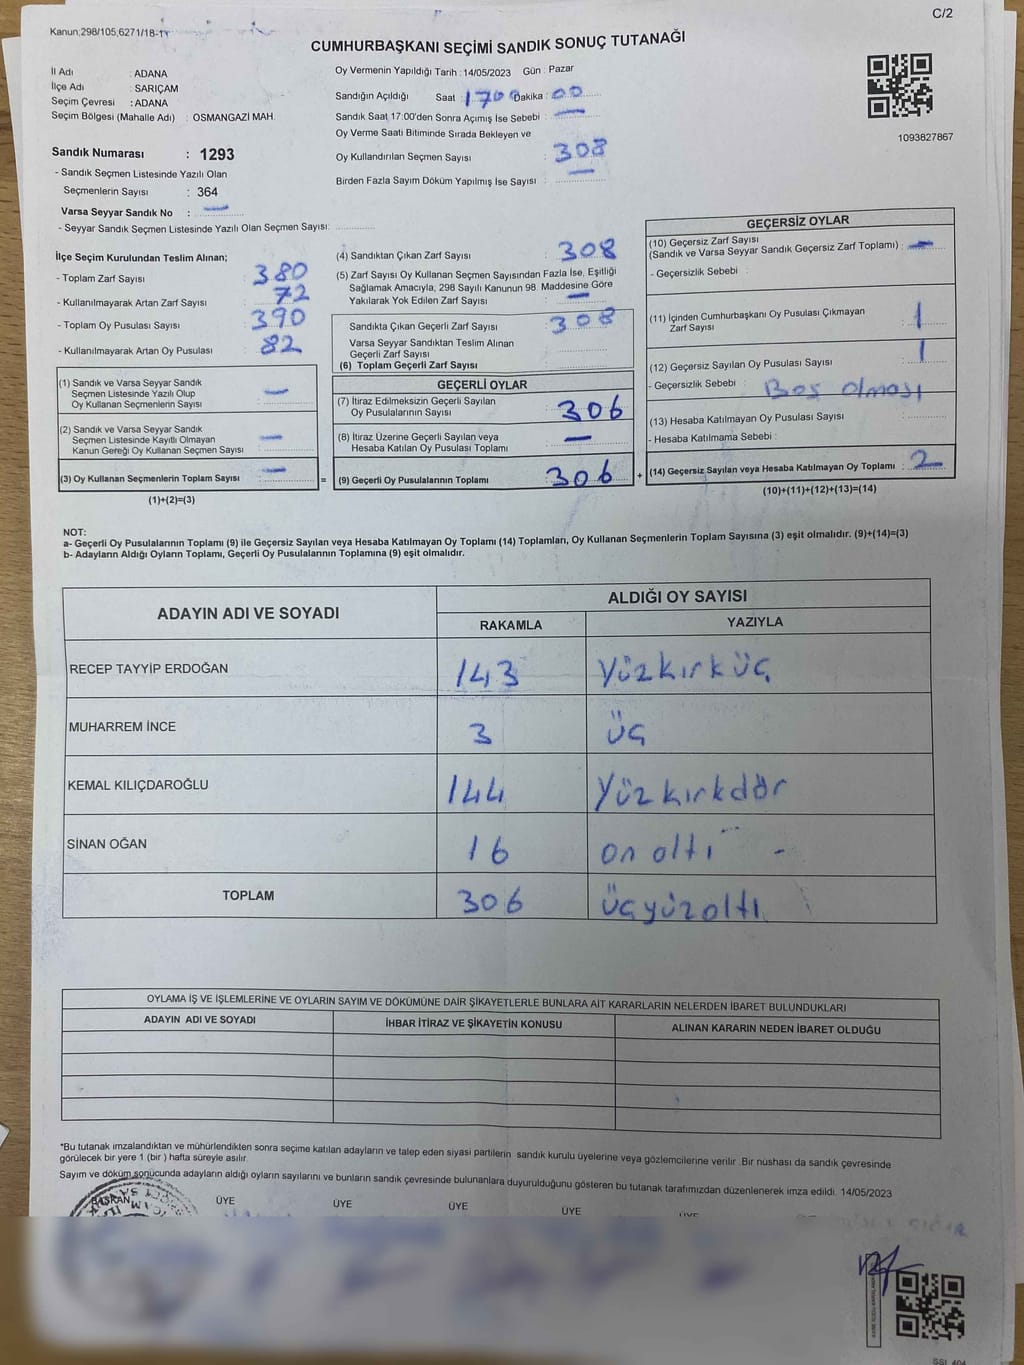 C/2
Kanun;298/105;6271/18-1
CUMHURBAŞKANI SEÇİMİ SANDIK SONUÇ TUTANAĞI
İl Adı : ADANA
İlçe Adı : SARIÇAM
Seçim Çevresi : ADANA
Seçim Bölgesi (Mahalle Adı) : OSMANGAZİ MAH.
Sandık Numarası : 1293
- Sandık Seçmen Listesinde Yazılı Olan
Seçmenlerin Sayısı : 364
Varsa Seyyar Sandık No : —
- Seyyar Sandık Seçmen Listesinde Yazılı Olan Seçmen Sayısı:
Oy Vermenin Yapıldığı Tarih : 14/05/2023 Gün : Pazar
Sandığın Açıldığı Saat : 17 00 Dakika : 00
Sandık Saat 17:00'den Sonra Açımış İse Sebebi : —
Oy Verme Saati Bitiminde Sırada Bekleyen ve
Oy Kullandırılan Seçmen Sayısı : 308
Birden Fazla Sayım Döküm Yapılmış İse Sayısı : —
1093827867
İlçe Seçim Kurulundan Teslim Alınan;
- Toplam Zarf Sayısı : 380
- Kullanılmayarak Artan Zarf Sayısı : 72
- Toplam Oy Pusulası Sayısı : 390
- Kullanılmayarak Artan Oy Pusulası : 82
(1) Sandık ve Varsa Seyyar Sandık
Seçmen Listesinde Yazılı Olup
Oy Kullanan Seçmenlerin Sayısı : —
(2) Sandık ve Varsa Seyyar Sandık
Seçmen Listesinde Kayıtlı Olmayan
Kanun Gereği Oy Kullanan Seçmen Sayısı : —
(3) Oy Kullanan Seçmenlerin Toplam Sayısı : —
(1)+(2)=(3)
(4) Sandıktan Çıkan Zarf Sayısı : 308
(5) Zarf Sayısı Oy Kullanan Seçmen Sayısından Fazla İse, Eşitliği
Sağlamak Amacıyla, 298 Sayılı Kanunun 98. Maddesine Göre
Yakılarak Yok Edilen Zarf Sayısı : —
Sandıkta Çıkan Geçerli Zarf Sayısı : 308
Varsa Seyyar Sandıktan Teslim Alınan
Geçerli Zarf Sayısı
(6) Toplam Geçerli Zarf Sayısı :
GEÇERLİ OYLAR
(7) İtiraz Edilmeksizin Geçerli Sayılan
Oy Pusulalarının Sayısı : 306
(8) İtiraz Üzerine Geçerli Sayılan veya
Hesaba Katılan Oy Pusulası Toplamı : —
= (9) Geçerli Oy Pusulalarının Toplamı : 306 +
GEÇERSİZ OYLAR
(10) Geçersiz Zarf Sayısı
(Sandık ve Varsa Seyyar Sandık Geçersiz Zarf Toplamı) : —
- Geçersizlik Sebebi :
(11) İçinden Cumhurbaşkanı Oy Pusulası Çıkmayan
Zarf Sayısı : 1
(12) Geçersiz Sayılan Oy Pusulası Sayısı : 1
- Geçersizlik Sebebi : Boş olması
(13) Hesaba Katılmayan Oy Pusulası Sayısı :
- Hesaba Katılmama Sebebi :
(14) Geçersiz Sayılan veya Hesaba Katılmayan Oy Toplamı : 2
(10)+(11)+(12)+(13)=(14)
NOT:
a- Geçerli Oy Pusulalarının Toplamı (9) ile Geçersiz Sayılan veya Hesaba Katılmayan Oy Toplamı (14) Toplamları, Oy Kullanan Seçmenlerin Toplam Sayısına (3) eşit olmalıdır. (9)+(14)=(3)
b- Adayların Aldığı Oyların Toplamı, Geçerli Oy Pusulalarının Toplamına (9) eşit olmalıdır.
ADAYIN ADI VE SOYADI ALDIĞI OY SAYISI
RAKAMLA YAZIYLA
RECEP TAYYİP ERDOĞAN 143 Yüzkırküç
MUHARREM İNCE 3 üç
KEMAL KILIÇDAROĞLU 144 Yüzkırkdör
SİNAN OĞAN 16 on altı -
TOPLAM 306 üçyüzaltı
OYLAMA İŞ VE İŞLEMLERİNE VE OYLARIN SAYIM VE DÖKÜMÜNE DAİR ŞİKAYETLERLE BUNLARA AİT KARARLARIN NELERDEN İBARET BULUNDUKLARI
ADAYIN ADI VE SOYADI İHBAR İTİRAZ VE ŞİKAYETİN KONUSU ALINAN KARARIN NEDEN İBARET OLDUĞU
*Bu tutanak imzalandıktan ve mühürlendikten sonra seçime katılan adayların ve talep eden siyasi partilerin sandık kurulu üyelerine veya gözlemcilerine verilir. Bir nüshası da sandık çevresinde
görülecek bir yere 1 (bir ) hafta süreyle asılır.
Sayım ve döküm sonucunda adayların aldığı oyların sayılarını ve bunların sandık çevresinde bulunanlara duyurulduğunu gösteren bu tutanak tarafımızdan düzenlenerek imza edildi. 14/05/2023
BAŞKAN ÜYE ÜYE ÜYE ÜYE ÜYE